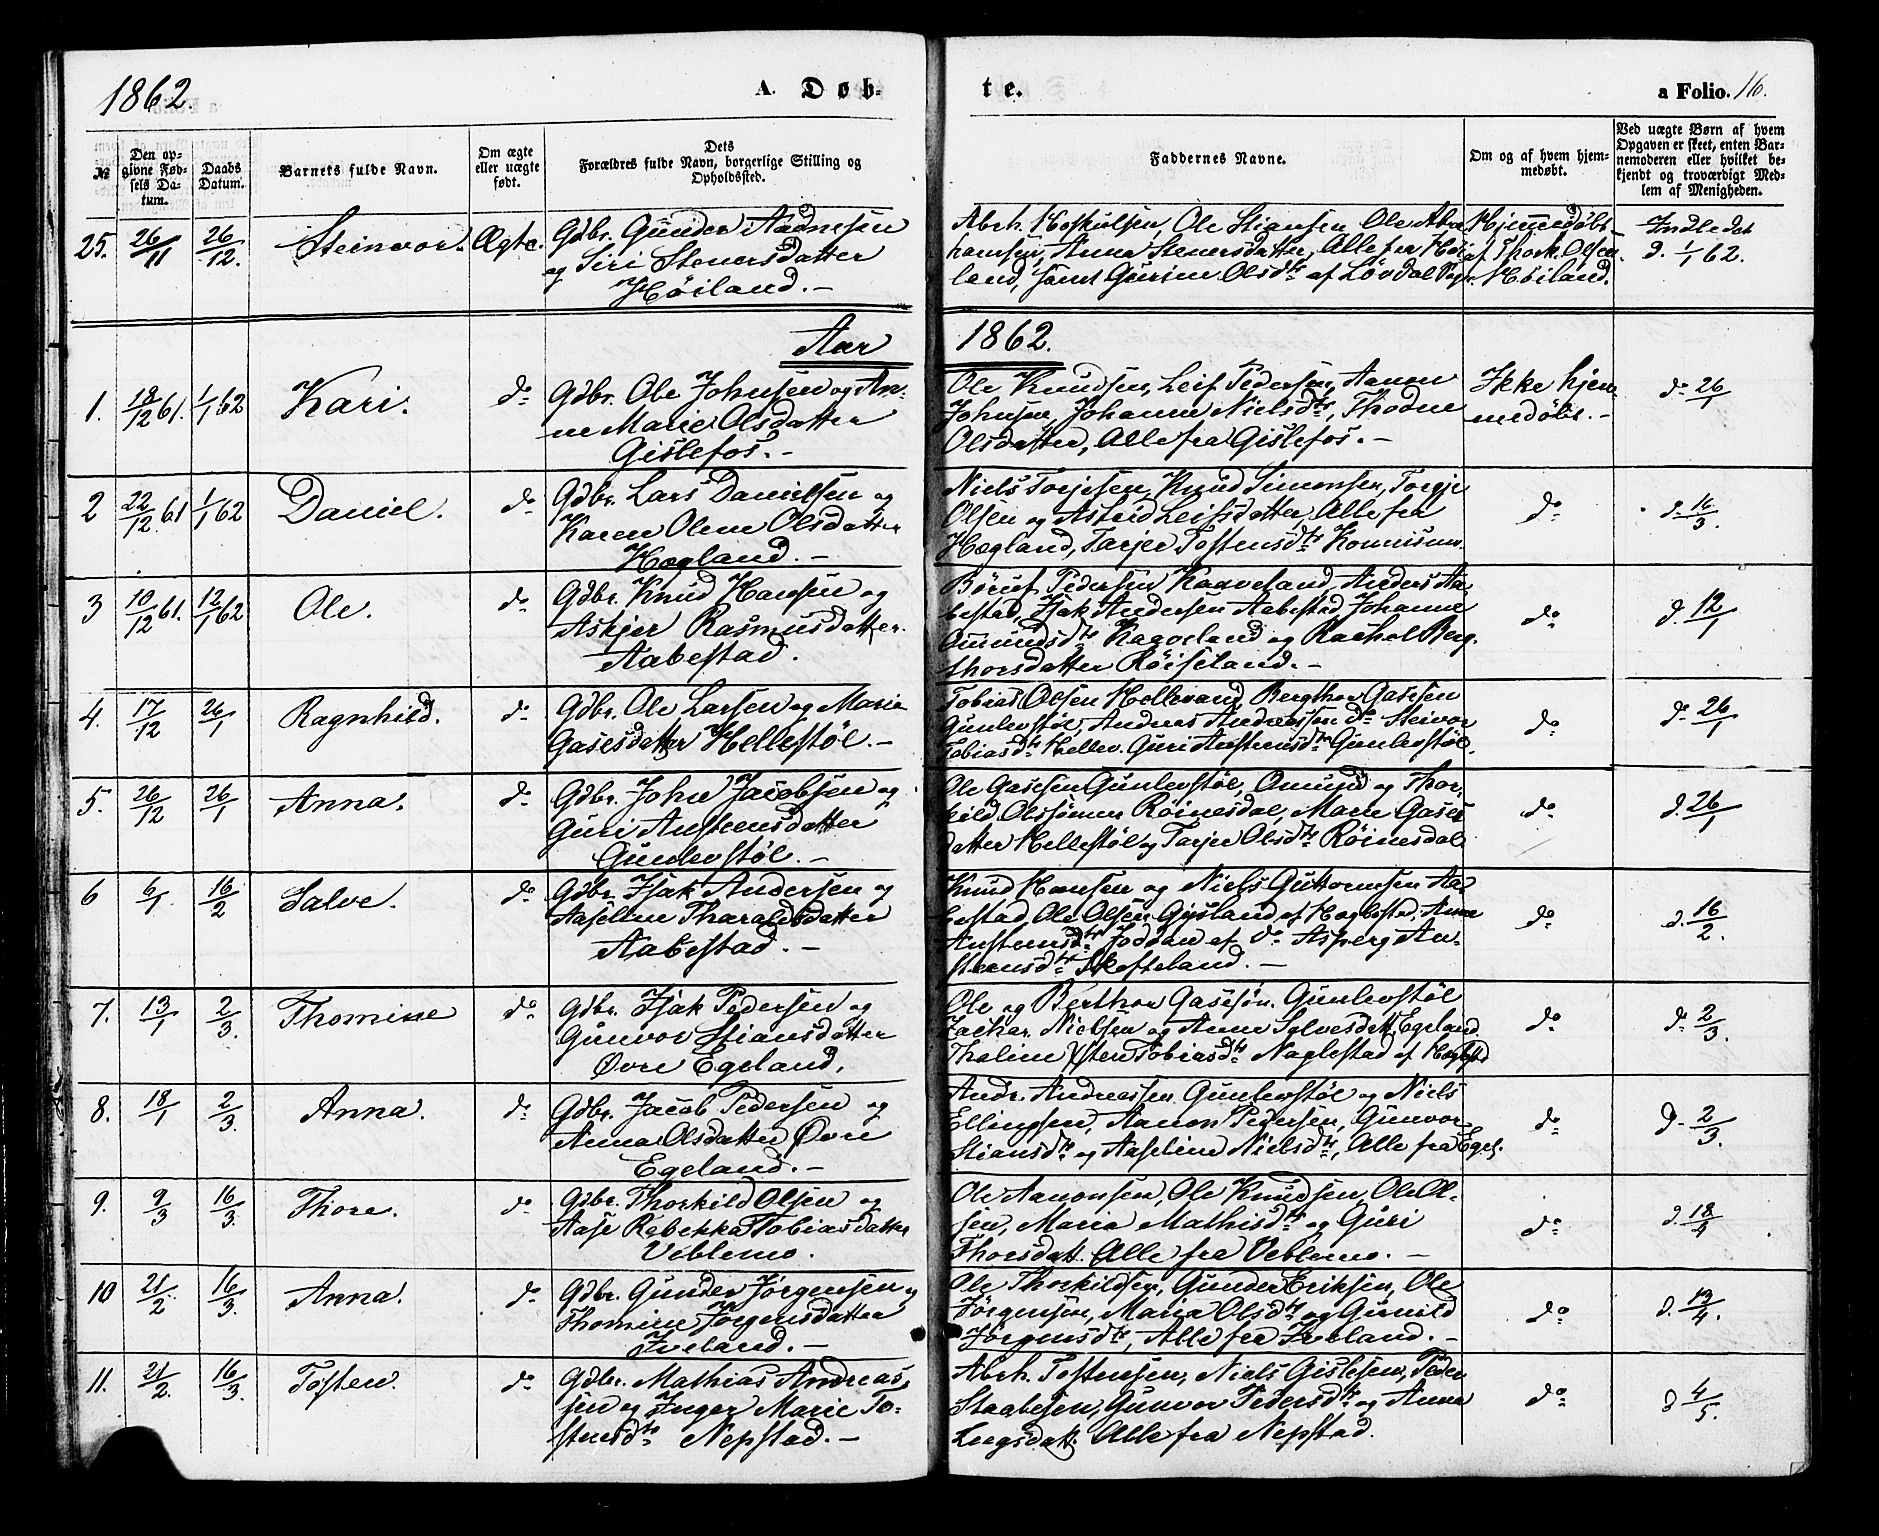 1862.
A. Døb-
te.
a Folio. 16.
№
Den op-
givne Fød-
sels Da-
tum.
Daabs
Datum.
Barnets fulde Navn.
Om ægte
eller uægte
født.
Dets
Forældres fulde Navn, borgerlige Stilling og
Opholdssted.
Faddernes Navne.
Om og af hvem hjem-
medøbt.
Ved uægte Børn af hvem
Opgaven er skeet, enten Bar-
nemoderen eller hvilket be-
kjendt og troværdigt Med-
lem af Menigheden.
25. 26/11 26/12. Steinvor. Ægte.
Gdbr. Gunder Aadnesen
og Siri Stenersdatter
Høiland. –
Abrh. Hoskulsen, Ole Stiansen, Ole Abra-
hamsen, Anna Stenersdatter, Alle fra Høi-
land, samt Gurine Olsdtr af Løvdal
Hjemmedøbt
af Thork. Olsen
Høiland.
Indledet
d. 1/1 62.
Aar 1862.
1. 18/12 61. 1/1 62 Kari. do
Gdbr. Ole Johnsen og An-
ne Marie Olsdatter
Gislefos. –
Ole Knudsen, Leif Pedersen, Aanon
Johnsen, Johanne Nielsdtr, Thodne
Olsdatter, Alle fra Gislefos. –
Ikke hjem-
medøbt. –
do 26/1
2 22/12 61 1/1 62 Daniel. do
Gdbr. Lars Danielsen og
Karen Olene Olsdatter
Hægland. –
Niels Torjesen, Knud Simonsen, Torje
Olsen og Astrid Leifsdatter, Alle fra
Hægland, Tarjer Tostensdtr
do
d. 16/3.
3 10/12 61. 12/1 62 Ole. do
Gdbr. Knud Hansen og
Askjer Rasmusdatter.
Aabestad.
Børuf Pedersen Kaaveland, Anders Aa-
bestad, Isak Andersen Aabestad, Johanne
Omundsdtr Kaaveland og Rachel Berg-
thorsdatter Røiseland. –
do
d. 12/1
4. 17/12 26/1 Ragnhild. do
Gdbr. Ole Larsen og Marie
Gasesdatter Hellestøl. –
Tobias Olsen Hellevand, Bergthor Gasesen
Gunlevstøl, Andreas Andreassen do Steivor
Tobiasdtr Hellev. Guri Anstensdtr Gunlevstøl.
do
do 26/1
5. 26/12 26/1 Anna. do
Gdbr. John Jacobsen og
Guri Anstensdatter
Gunlevstøl. –
Ole Gasesen Gunlevstøl, Omund og Thor-
kild Olssønner Røinesdal, Marie Gases-
datter Hellestøl og Tarjer Olsdtr Røinesdal
do
d. 26/1
6 6/1. 16/2 Salve. do
Gdbr. Isak Andersen og
Aaselline Tharaldsdatter
Aabestad. –
Knud Hansen og Niels Guttormsen Aa-
bestad, Ole Olsen Gysland af Hægbestad, Anne
Anstensdtr Joddan af do Asperg An-
stensdtr Skofteland. –
do
d. 16/2.
7. 13/1 2/3. Thomine do
Gdbr. Isak Pedersen og
Gunvor Stiansdatter
Øvre Egeland.
Ole og Berthor Gasesøn. Gunlevstøl
Zachar. Nielsen og Anne Salvesdatt. Egeland.
Thaline Tobiasdtr Naglestad af Hægbstd
do
do 2/3.
8. 18/1 2/3. Anna. do
Gdbr. Jacob Pedersen og
Anna Olsdatter Øvre
Egeland. –
Andr. Andreassen Gunlevstøl og Niels
Ellingsen, Aanon Pedersen, Gunvor
Stiansdtr og Aaseline Nielsdtr, Alle fra Egel.
do
d- 2/3.
9. 9/3 16/3. Thore. do
Gdbr. Thorkild Olsen og
Aase Rebekka Tobiasdatter
Veblemo.
Ole Aanonsen, Ole Knudsen, Ole Ol-
sen, Maria Mathisdtr og Guri
Thorsdatt. Alle fra Veblemo. –
do
d. 18/4
10 21/2. 16/3. Anna. do
Gdbr. Gunder Jørgensen og
Thomine Jørgensdatter
Iveland. –
Ole Thorkildsen, Gunder Eriksen, Ole
Jørgensen, Maria Olsdtr og Gunild
Jørgensdtr, Alle fra Iveland. –
do
d. 13/4.
11. 21/2. 16/3. Tosten. do
Gdbr. Mathias Andreas-
sen og Inger Marie To-
stensdtr Nepstad. –
Abrh. Tostensen, Niels Gislesen, Peder
Staalesen, Gunvor Pedersdtr og Anna
Alle fra Nepstad.
do
d 4/5.